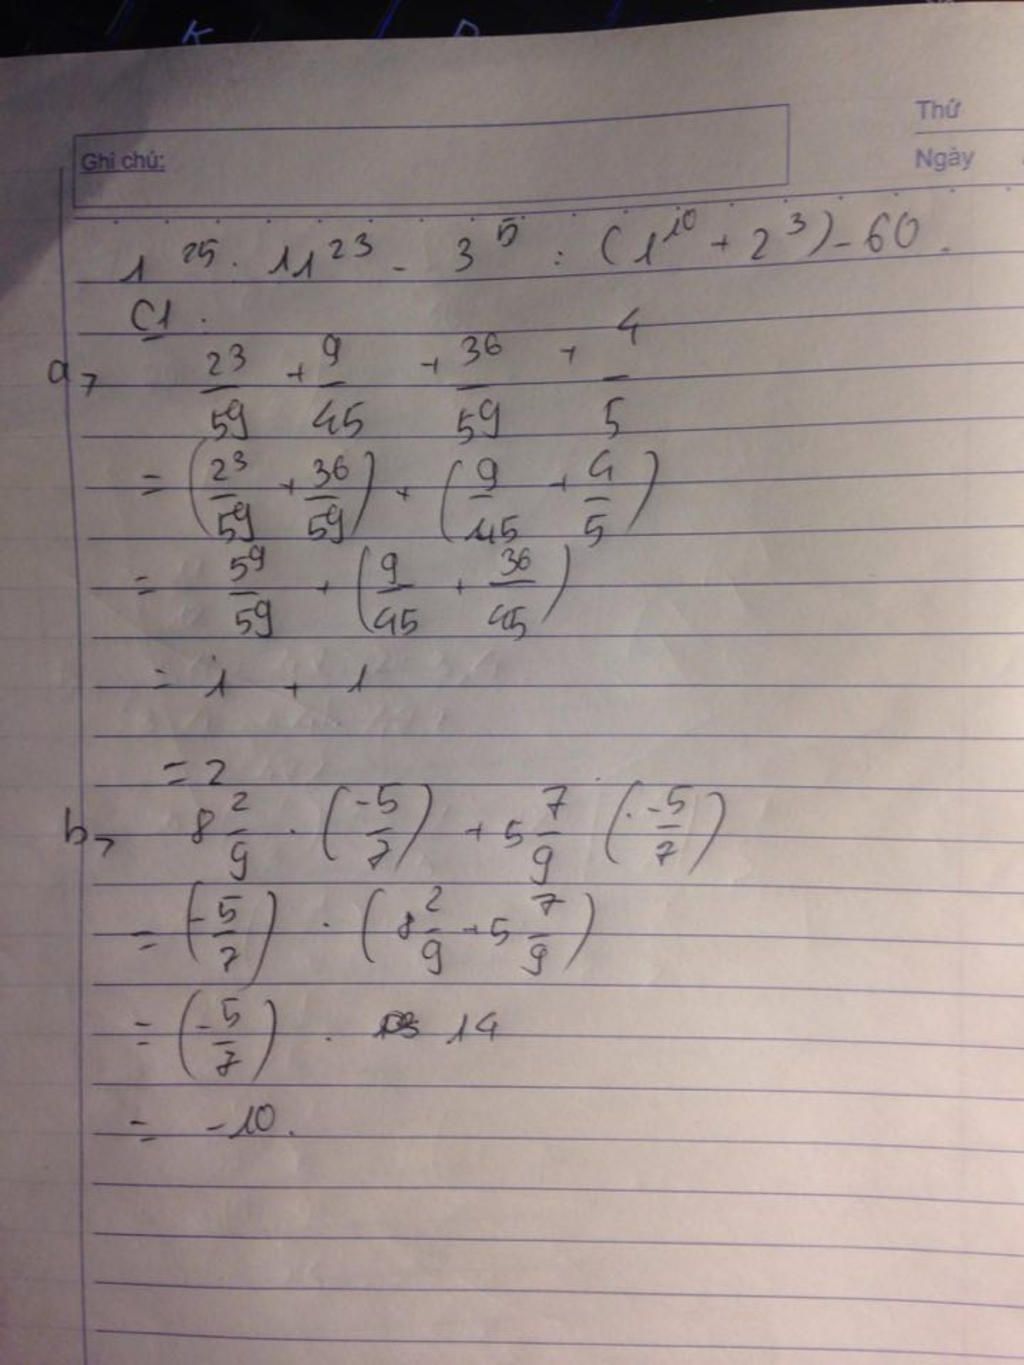 K
Thứ
Ghi chú:
Ngày
1^25 . 11^23 - 3^5 : (1^10 + 2^3) - 60 .
C1 .
a, 23/59 + 9/45 + 36/59 + 4/5
= (23/59 + 36/59) + (9/45 + 4/5)
= 59/59 + (9/45 + 36/45)
= 1 + 1
= 2
b, 8 2/9 . (-5/7) + 5 7/9 (. -5/7)
= (-5/7) . (8 2/9 + 5 7/9)
= (-5/7) . 14
= -10 .